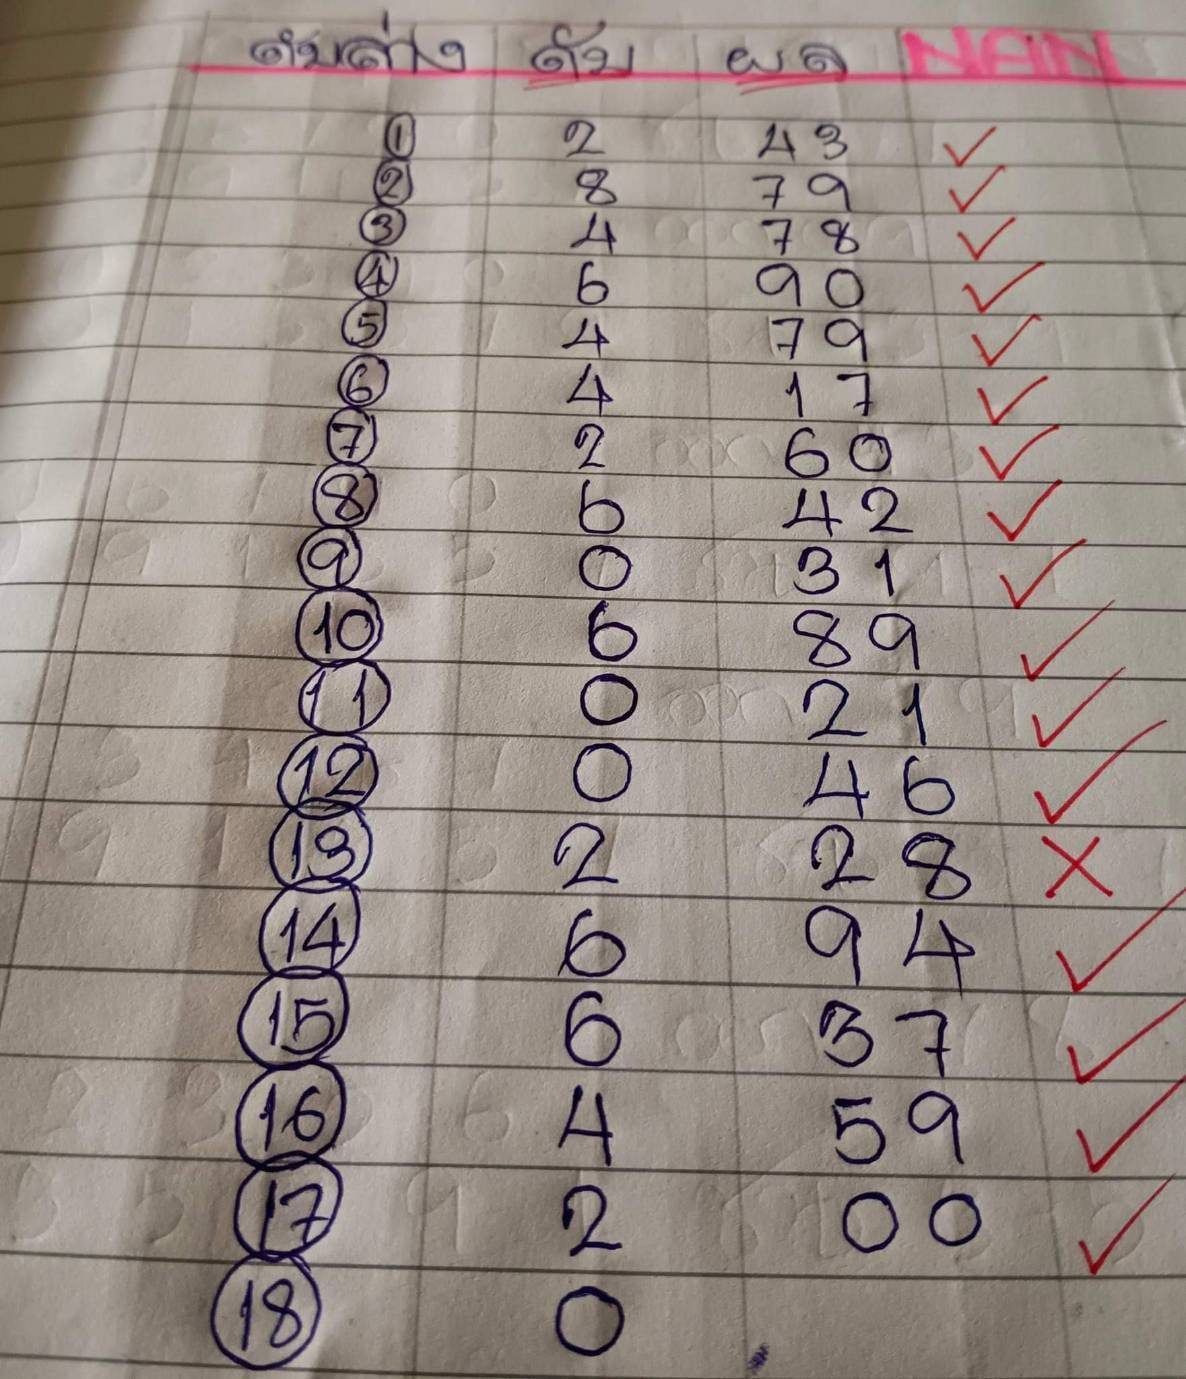 ดับล่าง ดับ ผล NAN
1 2 43 ✓
2 8 79 ✓
3 4 78 ✓
4 6 90 ✓
5 4 79 ✓
6 4 17 ✓
7 2 60 ✓
8 6 42 ✓
9 0 31 ✓
10 6 89 ✓
11 0 21 ✓
12 0 46 ✓
13 2 28 X
14 6 94 ✓
15 6 37 ✓
16 4 59 ✓
17 2 00 ✓
18 0